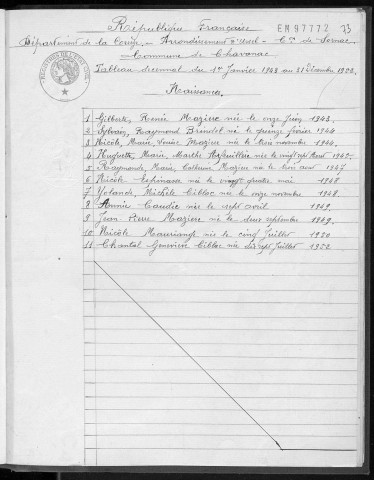 République Française EM 97772 33
Département de la Corrèze - Arrondissement d'Ussel - Cton de Sornac
Commune de Chavanac
Tableau décennal du 1er Janvier 1943 au 31 Décembre 1952.
Naissances
1 Gilberte, Renée Mazière née le onze Juin 1943.
2 Sylvain, Raymond Brindel né le quinze février 1944
3 Nicole, Marie, Louise Mazière née le trois novembre 1944.
4 Huguette, Marie, Marthe née le vingt sept Avril 1945.
5 Raymonde, Marie, Mazière née le trois avril 1947
6 Nicole Espinasse née le vingt quatre mai 1948
7 Yolande, Michèle Cibloc née le onze novembre 1948.
8 Annie Coudic née le sept avril 1949.
9 Jean Pierre Mazière né le deux septembre 1949.
10 Nicole Mauriange née le cinq Juillet 1950
11 Chantal Geneviève Cibloc née dix sept Juillet 1952